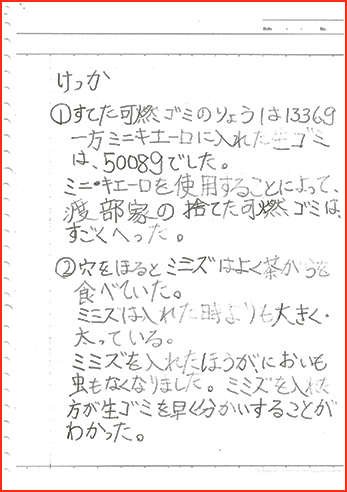 けっか
①すてた可燃ゴミのりょうは1336g
一方ミニキエーロに入れた生ゴミ
は、5008gでした。
ミニ・キエーロを使用することによって、
渡部家の捨てた可燃ゴミは、
すごくへった。
②穴をほるとミミズはよく茶がらを
食べていた。
ミミズは入れた時よりも大きく・
太っている。
ミミズを入れたほうがにおいも
虫もなくなりました。ミミズを入れた
方が生ゴミを早く分かいすることが
わかった。